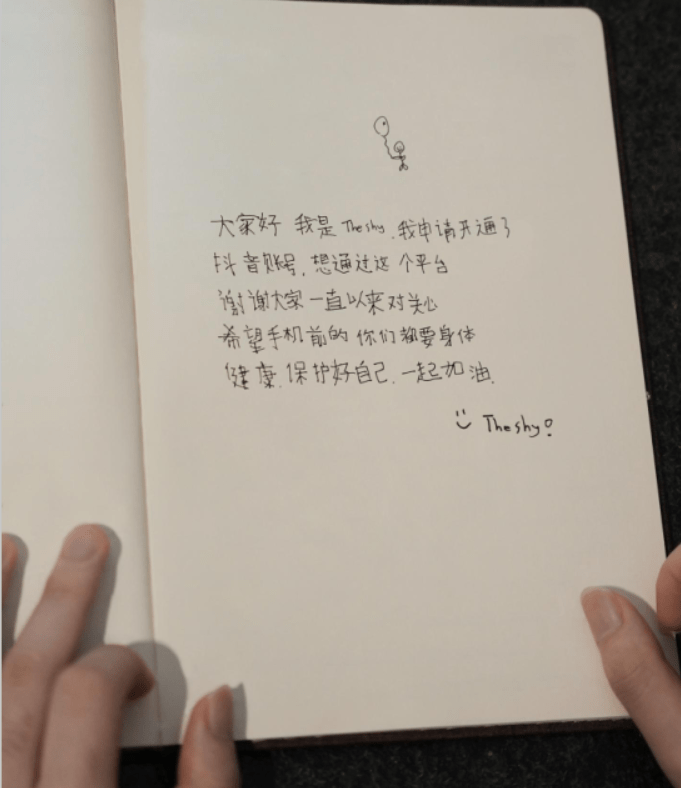 大家好 我是 Theshy，我申请开通了
抖音账号，想通过这个平台
谢谢大家一直以来对关心
希望手机前的你们都要身体
健康，保护好自己，一起加油，
Theshy!